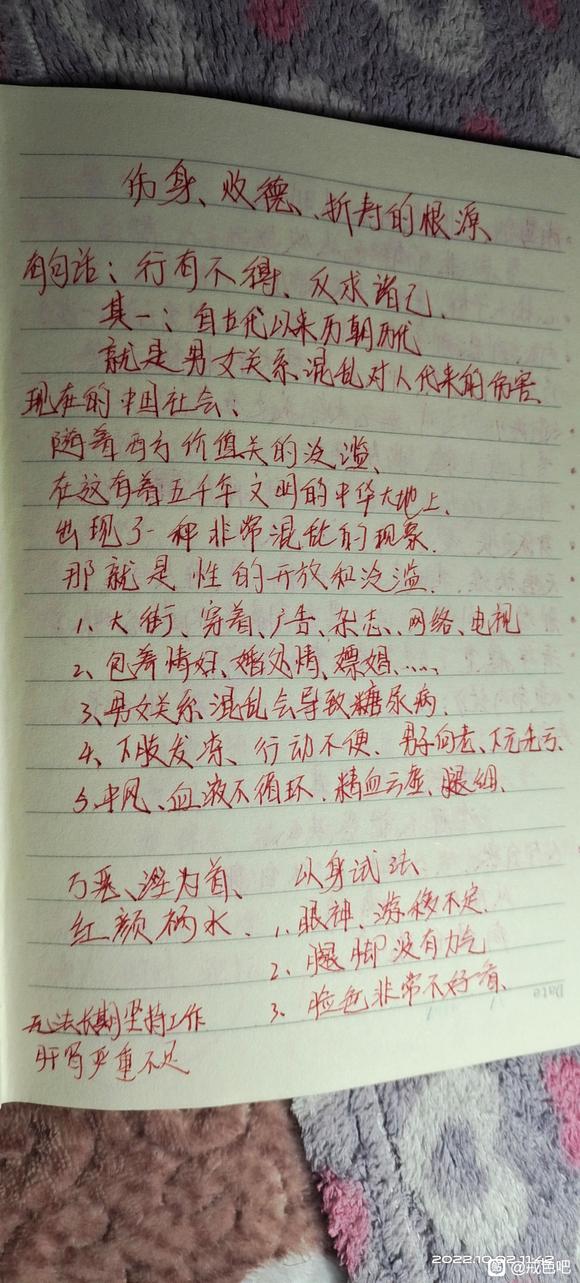 伤身、败德、折寿的根源、
有句话：行有不得、反求诸己、
其一；自古代以来历朝历代
就是男女关系混乱对人代来的伤害、
现在的中国社会、
随着西方价值关的泛滥、
在这有着五千年文明的中华大地上、
出现了一种非常混乱的现象、
那就是性的开放和泛滥、
1、大街、穿着、广告、杂志、网络、电视
2、包养情妇、婚外情、嫖娼、……
3、男女关系混乱会导致糖尿病、
4、下肢发凉、行动不便、男子向老、下元先亏、
5、中风、血液不循环、精血亏虚、腿细、
万恶、淫为首、
以身试法
红颜祸水、
1、眼神、游移不定、
2、腿脚没有力气
3、脸色非常不好看、
无法长期坚持工作
肝肾严重不足
Date
2022.10.02 11:42
@戒色吧